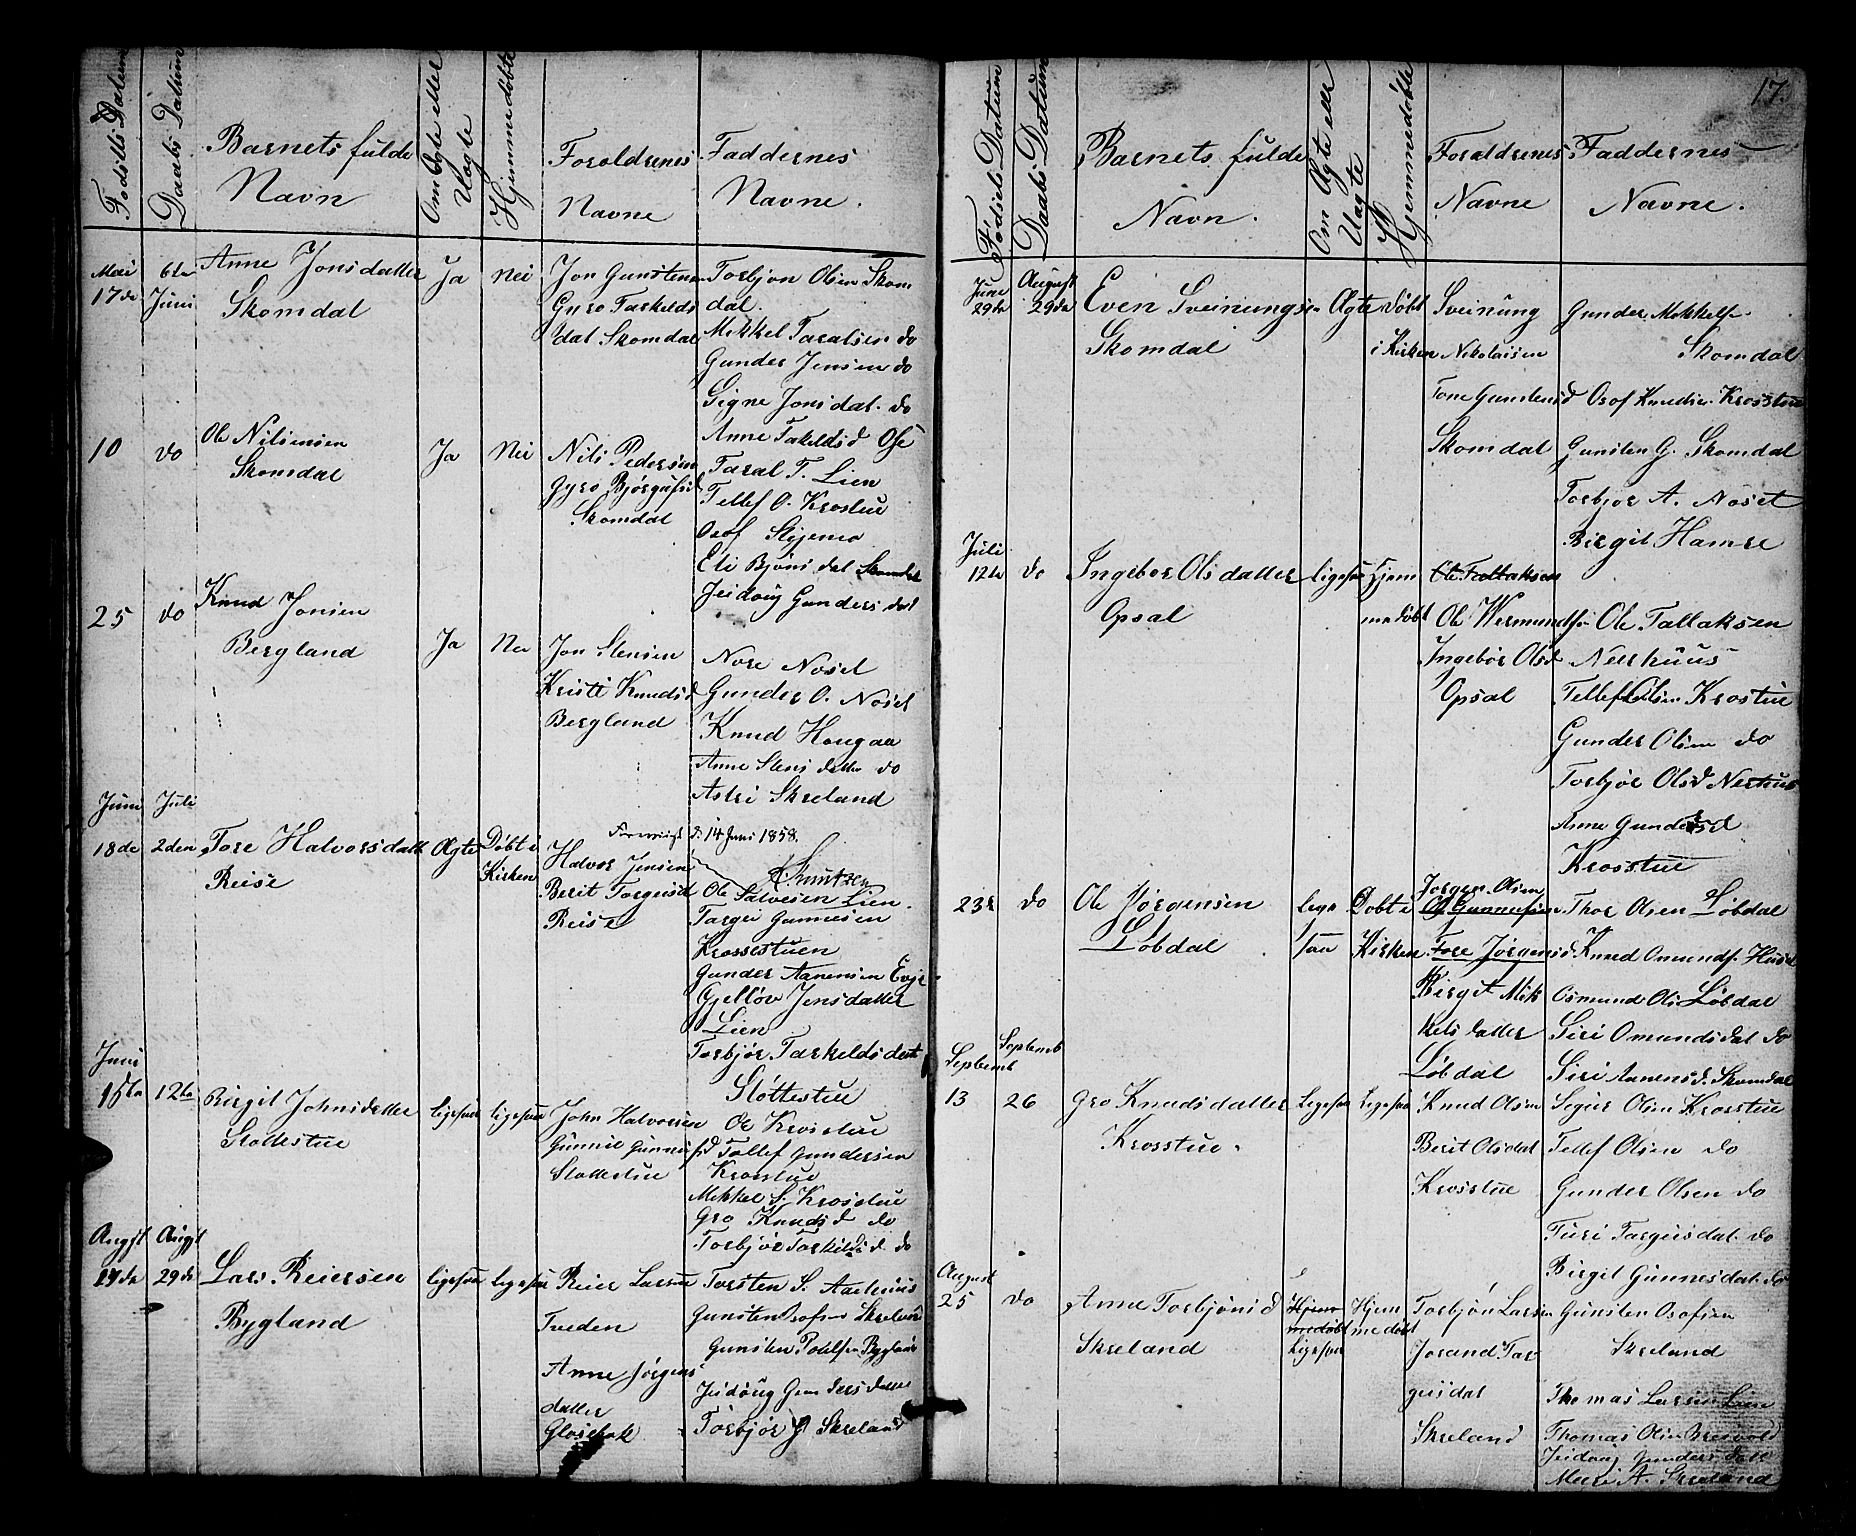 Fødsels Datum
Daabs Datum
Barnets fulde
Navn
Om Ægte eller
Uægte
Hjemmedøbte
Foraldrenes
Navne
Faddernes
Navne.
Mai
17de
6te
Juni
Anne Jonsdatter
Skomdal
Ja
Nei
Jon Gunstens
Gyro Tarkelds
dat. Skomdal
Torbjøn Olsen Skom
dal.
Mekkel Taralsen do
Gunder Jensen do
Signe Jonsdat. do
Anne Takeldsd Ose
10
do
Ole Nilsensen
Skomdal
Ja
Nei
Nils Pedersen
Gyro Bjørgufsd
Skomdal
Taral T. Lien
Tellef O. Krostue
Osof Stijemo
Eli Bjøns dat Skomdal
Jeidoug Gunders dat
25
do
Knud Jonsen
Bergland
Ja
Nei
Jon Stensen
Kristi Knudsd
Bergland
Nore Noset
Gunder O. Noset
Knud Hougaa
Anne Stens datter do
Astri Skreland
Juni
18de
Juli
2den
Tore Halvorsdatt
Reise
Ægte
Døbt i
Kirken
Halvor Jensen
Berit Torgeusd
Reise
d. 14 Juni 1858.
Knutzen
Ole Salvesen Lien.
Targe Gunnesen
Krossestuen
Gunder Aanensen Evje
Gjelløv Jensdatter
Lien
Torbjør Tarkeldsdatt
Støttestue
Juni
15de
12te
Birgit Johnsdatter
Stottestue
ligesaa
ligesaa
John Halvorsen
Gunnil Gunnufsd
Stottestue
Ole Krosstue
Tollef Gundersen
Krosstue
Mekkel S. Krosstue
Gro Knudsd do
Torbjør Torkildsd. do
Augst
29de
Augst
29de
Lars Reiersen
Bygland
ligesaa
ligesaa
Reier Larsen
Tveden
Anne Jørgens
datter
Glosebak
Torsten S. Aaelenus
Gunsten Osofsen Skreland
Gunsten Bygland
Jeidoug Gundersdatter
Torbjør G Skreland
17.
Fødsels Datum
Daabs Datum
Barnets fulde
Navn.
Om Ægte eller
Uægte
Hjemmedøbte
Foraldrenes
Navne
Faddernes
Navne.
June
29de
August
29de
Even Sveinungsen
Skomdal
Ægte
Døbt
i Kirken
Sveinung
Nikolaisen
Tone Gunstensd
Skomdal
Gunder Mekkelse
Skomdal
Osof Knudsen Krosstue
Gunsten G. Skomdal
Torbjør A. Noset
Birgit Hamre
Juli
12te
do
Ingebor Olsdatter
Opsal
ligesaa
Hjem
medøbt
Ole Tallaksen
Ole Wermundsen
Ingebør Olsd
Opsal
Ole Tallaksen
Neerhuus
Tellef Olsen Krostue
Gunder Olsen do
Torbjør Olsd Nerhus
Anne Gundersd
Krosstue
23de
do
Ole Jørgensen
Løbdal
Lige
saa
Døbt i
Kirken
Jørgen Olsen
Ole Gunnufsen
Tore Jørgensd
Birget Mek
kelsdatter
Løbdal
Thor Olsen Løbdal
Knud Omundsen
Osmund Olsen Løbdal
Siri Omundsdat do
Siri Aanensd. Skomdal
Septemb
13
Septemb
26
Gro Knudsdatter
Krosstue.
Ligesaa
Ligesaa
Knud Olsen
Berit Olsdat
Krosstue
Segur Olsen Krosstue
Tellef Olsen do
Gunder Olsen do
Turi Targeisdat. do
Birgit Gunnesdat. do
August
25
do
Anne Torbjønsd
Skreland
Hjem
medøbt
Ligesaa
Hjem
medøbt
Torbjøn Larsen
Jorand Tar
geisdat
Skreland
Gunsten Osofsen
Skreland
Thomas Larsen Lien
Thomas Olsen Breivold
Jeidoug Gundersdatt
Mari A. Skreland